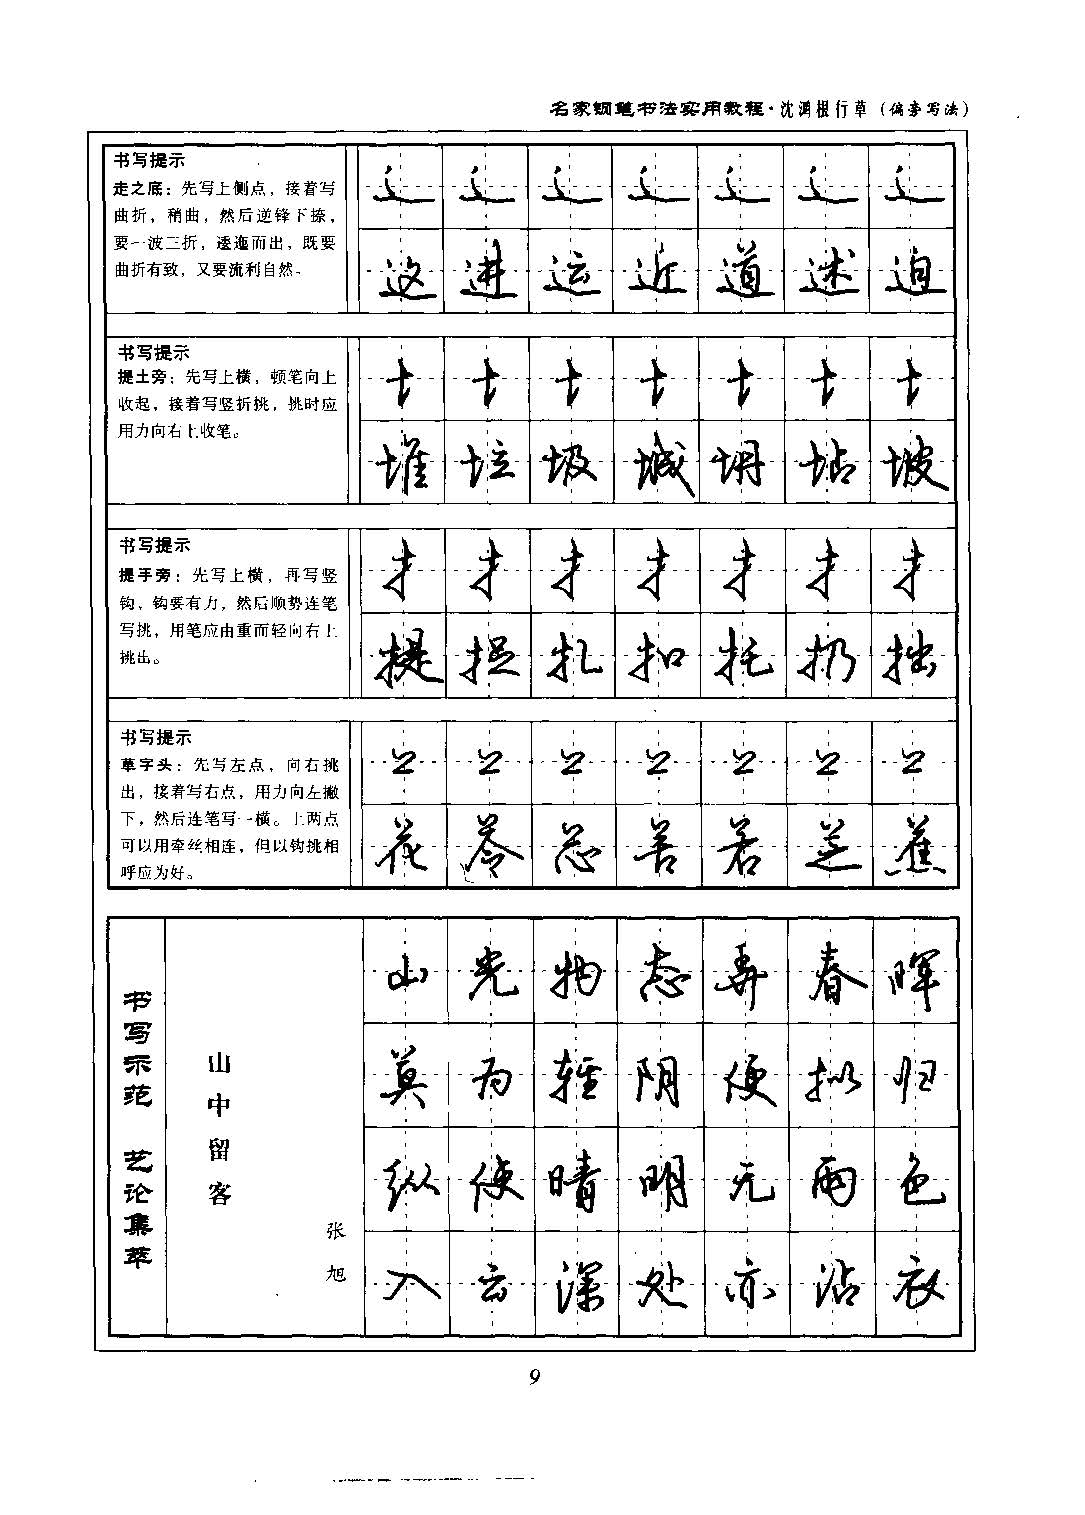 名家钢笔书法实用教程·沈鸿根行草(偏旁写法)
书写提示
走之底：先写上侧点，接着写
曲折，稍曲，然后逆锋下捺，
要一波三折，逶迤而出，既要
曲折有致，又要流利自然。
辶 辶 辶 辶 辶 辶 辶
这 进 运 近 道 述 迫
书写提示
提土旁：先写上横，顿笔向上
收起，接着写竖折挑，挑时应
用力向右上收笔。
堆 垃 圾 城 坍 坫 坡
书写提示
提手旁：先写上横，再写竖
钩，钩要有力，然后顺势连笔
写挑，用笔应由重而轻向右上
挑出。
扌 扌 扌 扌 扌 扌 扌
提 捉 扎 扣 托 扔 拙
书写提示
草字头：先写左点，向右挑
出，接着写右点，用力向左撇
下，然后连笔写一横。上两点
可以用牵丝相连，但以钩挑相
呼应为好。
花 苓 芯 苦 若 芝 蕉
书写示范 艺论集萃
山中留客
张旭
山光物态弄春晖
莫为轻阴便拟归
纵使晴明无雨色
入云深处亦沾衣
9